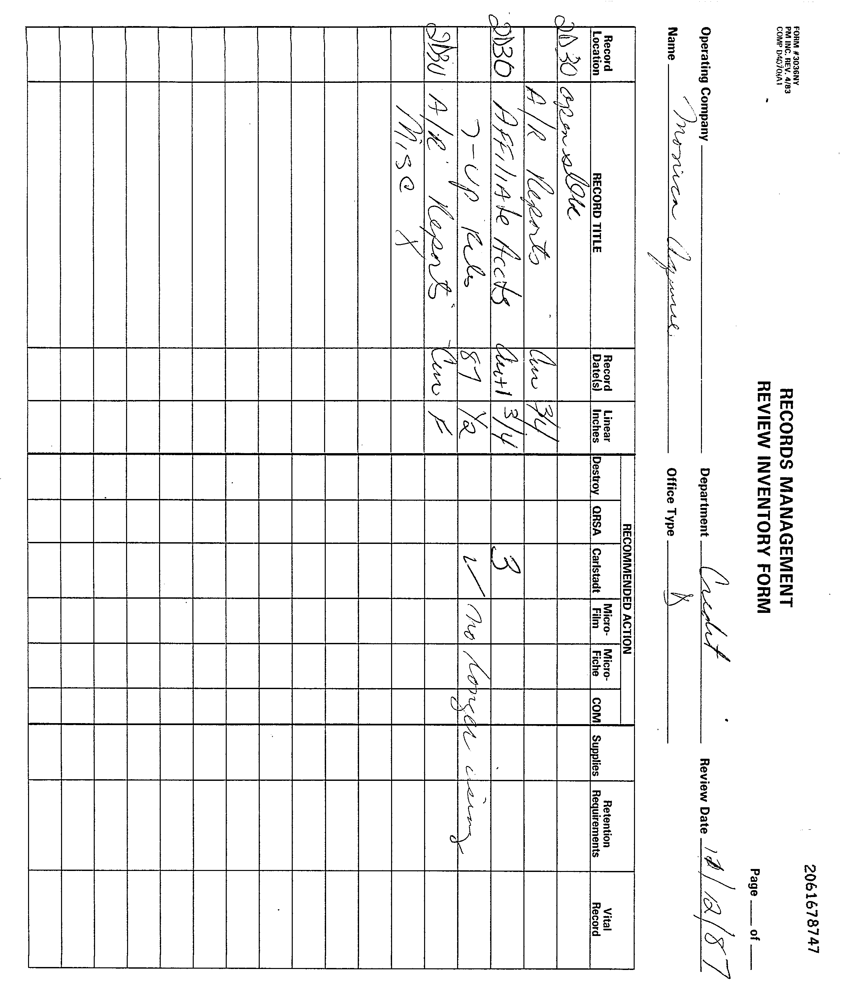 2061678747
Page ___ of ___
FORM #3036NY
PM INC. REV. 4/83
COMP D4070(A1
RECORDS MANAGEMENT
REVIEW INVENTORY FORM
Operating Company Department Credit Review Date 12/12/87
Name Monica Office Type D
RECOMMENDED ACTION
Record Location RECORD TITLE Record Date(s) Linear Inches Destroy QRSA Carlstadt Micro-Film Micro-Fiche COM Supplies Retention Requirements Vital Record
2D30 open
A/R Reports Cur 3/4
2D30 Affiliate Accts Cur+1 3/4 3
7-UP 87 1/2 ✓ no longer using
A/R Reports Cur F
Misc X